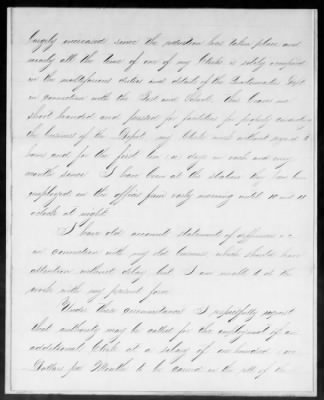 largely increased since the reduction has taken place and
nearly all the time of one of my Clerks is solely occupied
in the multifarious duties and details of the Quartermasters Dept
in connection with the Post and Depot, this leaves me
short handed and pressed for facilities for properly conducting
the business of the Depot, my Clerks work without regard to
hours and for the first ten days in each and every
month since I have been at the station they have been
employed in the office from early morning until 10 and 11
oclock at night.
I have old account statement of differences &c
in connection with my old business, which should have
attention without delay but I am unable to do the
work with my present force
Under these circumstances I respectfully request
that authority may be called for the employment of an
additional Clerk at a salary of one hundred
Dollars per Month to be carried on the roll of the